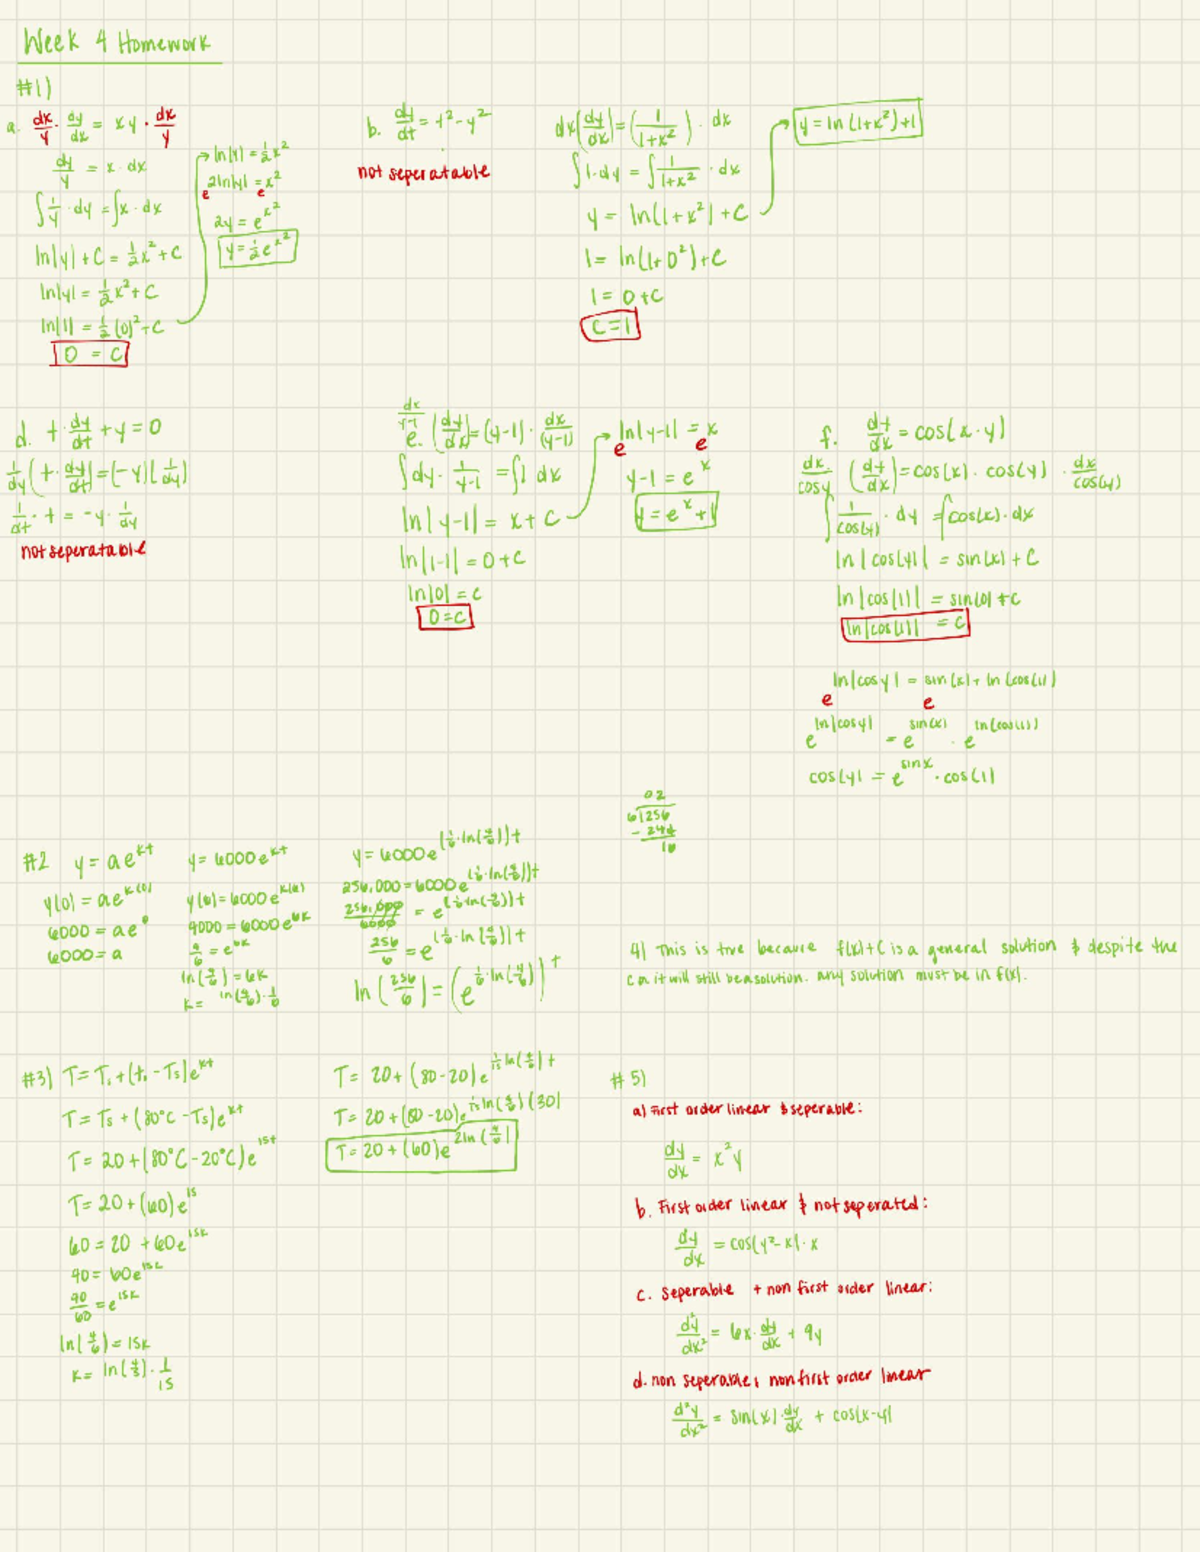 Week 4 Homework
#1)
a. dx/y · dy/dx = xy · dx/y
dy/y = x · dx
∫ 1/y · dy = ∫x · dx
ln|y| + C = 1/2 x² + C
ln|y| = 1/2 x² + C
ln|1| = 1/2 (0)² + C
0 = C
ln|y| = 1/2 x²
2ln|y| = x²
e e
2y = e^x²
y = 1/2 e^x²
b. dy/dt = t² - y²
not seperatable
dx(dy/dx) = (1/(1+x²)) · dx
∫1 · dy = ∫ 1/(1+x²) · dx
y = ln(1+x²) + C
1 = ln(1+0²) + C
1 = 0 + C
C = 1
y = ln(1+x²)+1
d. t · dy/dt + y = 0
1/dy (t · dy/dt) = (-y)(1/dy)
1/dt · t = -y · 1/dy
not seperatable
e. dx/(y-1) (dy/dx) = (y-1) · dx/(y-1)
∫dy · 1/(y-1) = ∫1 dx
ln|y-1| = x + C
ln|1-1| = 0 + C
ln|0| = C
0 = C
ln|y-1| = x
e e
y-1 = e^x
y = e^x + 1
f. dy/dx = cos(x·y)
dx/cosy (dy/dx) = cos(x) · cos(y) · dx/cos(y)
∫ 1/cos(y) · dy = ∫cos(x) · dx
ln|cos(y)| = sin(x) + C
ln|cos(1)| = sin(0) + C
ln|cos(1)| = C
ln|cosy| = sin(x) + ln(cos(1))
e e
e^ln|cosy| = e^sin(x) · e^ln(cos(1))
cos(y) = e^sinx · cos(1)
#2 y = ae^kt
y(0) = ae^k(0)
6000 = ae^0
6000 = a
y = 6000e^kt
y(6) = 6000e^k(6)
4000 = 6000e^6k
4/6 = e^6k
ln(4/6) = 6k
k = ln(4/6) · 1/6
y = 6000e^(1/6 · ln(4/6))t
256,000 = 6000e^(1/6 · ln(4/6))t
256,000/6000 = e^(1/6 ln(4/6))t
256/6 = e^(1/6 · ln(4/6))t
ln(256/6) = (e^1/6 · ln(4/6))^t
02
6|256
- 24
16
4) This is true because f(x)+C is a general solution & despite the
C a it will still be a solution. any solution must be in f(x).
#3) T = Ts + (to - Ts)e^kt
T = Ts + (80°C - Ts)e^kt
T = 20 + (80°C - 20°C)e^15t
T = 20 + (60)e^15
60 = 20 + 60e^15k
40 = 60e^15k
40/60 = e^15k
ln(4/6) = 15k
k = ln(4/6) · 1/15
T = 20 + (80-20)e^1/15 ln(4/6)t
T = 20 + (80-20)e^1/15 ln(4/6)(30)
T = 20 + (60)e^2ln(4/6)
#5)
a) First order linear & seperable:
dy/dx = x²y
b. First order linear & not seperated:
dy/dx = cos(y²-x) · x
c. seperable + non first order linear:
d²y/dx² = 6x · dy/dx + 9y
d. non seperable, non first order linear
d²y/dx² = sin(x) · dy/dx + cos(x-y)